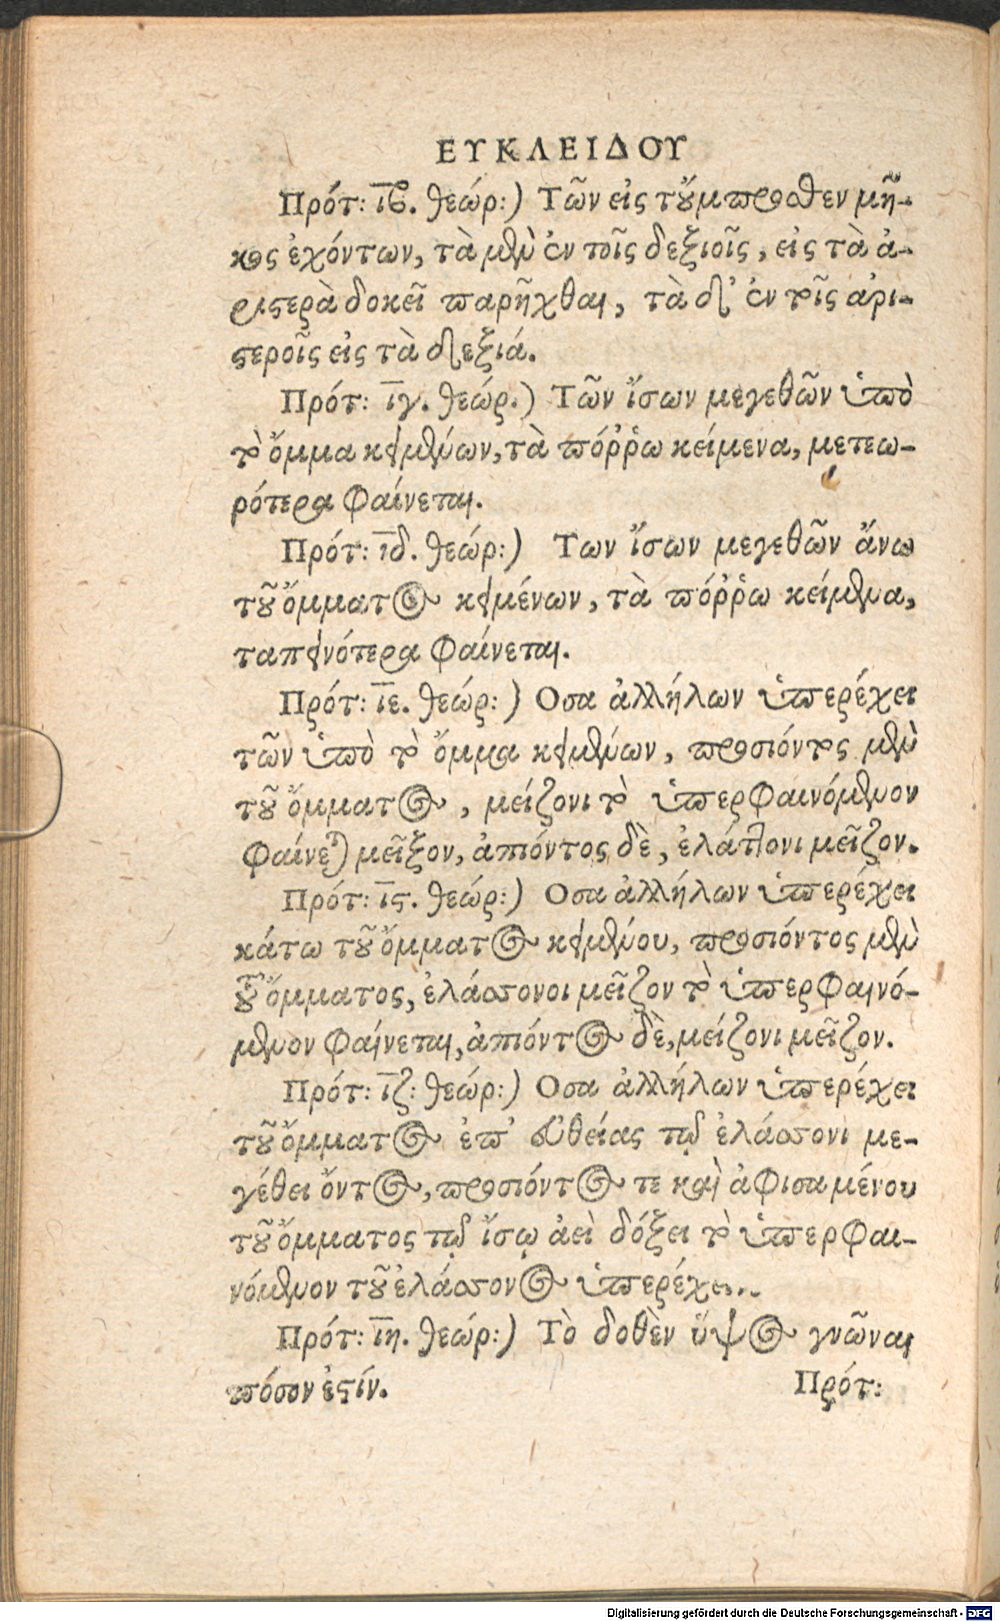 ΕΥΚΛΕΙΔΟΥ
Πρότ: ιβ. θεώρ:) Τῶν εἰς τοὔμπροσθεν μῆ-
κος ἐχόντων, τὰ μὲν ἐν τοῖς δεξιοῖς, εἰς τὰ ἀ-
ριστερὰ δοκεῖ παρῆχθαι, τὰ δ' ἐν τοῖς ἀρι-
στεροῖς εἰς τὰ δεξιά.
Πρότ: ιγ. θεώρ.) Τῶν ἴσων μεγεθῶν ὑπὸ
τὸ ὄμμα κειμένων, τὰ πόῤῥω κείμενα, μετεω-
ρότερα φαίνεται.
Πρότ: ιδ. θεώρ:) Των ἴσων μεγεθῶν ἄνω
τοῦ ὄμματος κειμένων, τὰ πόῤῥω κείμενα,
ταπεινότερα φαίνεται.
Πρότ: ιε. θεώρ:) Οσα ἀλλήλων ὑπερέχει
τῶν ὑπὸ τὸ ὄμμα κειμένων, προσιόντος μὲν
τοῦ ὄμματος, μείζονι τὸ ὑπερφαινόμενον
φαίνεται μεῖξον, ἀπιόντος δὲ, ἐλάττονι μεῖζον.
Πρότ: ις. θεώρ:) Οσα ἀλλήλων ὑπερέχει
κάτω τοῦ ὄμματος κειμένου, προσιόντος μὲν
τοῦ ὄμματος, ἐλάσσονοι μεῖζον τὸ ὑπερφαινό-
μενον φαίνεται, ἀπιόντος δὲ, μείζονι μεῖζον.
Πρότ: ιζ: θεώρ:) Οσα ἀλλήλων ὑπερέχει
τοῦ ὄμματος ἐπ' εὐθείας τῷ ἐλάσσονι με-
γέθει ὄντος, προσιόντος τε καὶ ἀφισαμένου
τοῦ ὄμματος τῷ ἴσῳ ἀεὶ δόξει τὸ ὑπερφαι-
νόμενον τοῦ ἐλάσσονος ὑπερέχειν.
Πρότ: ιη. θεώρ:) Τὸ δοθὲν ὕψος γνῶναι
πόσον ἐστίν.
Πρότ:
Digitalisierung gefördert durch die Deutsche Forschungsgemeinschaft - DFG